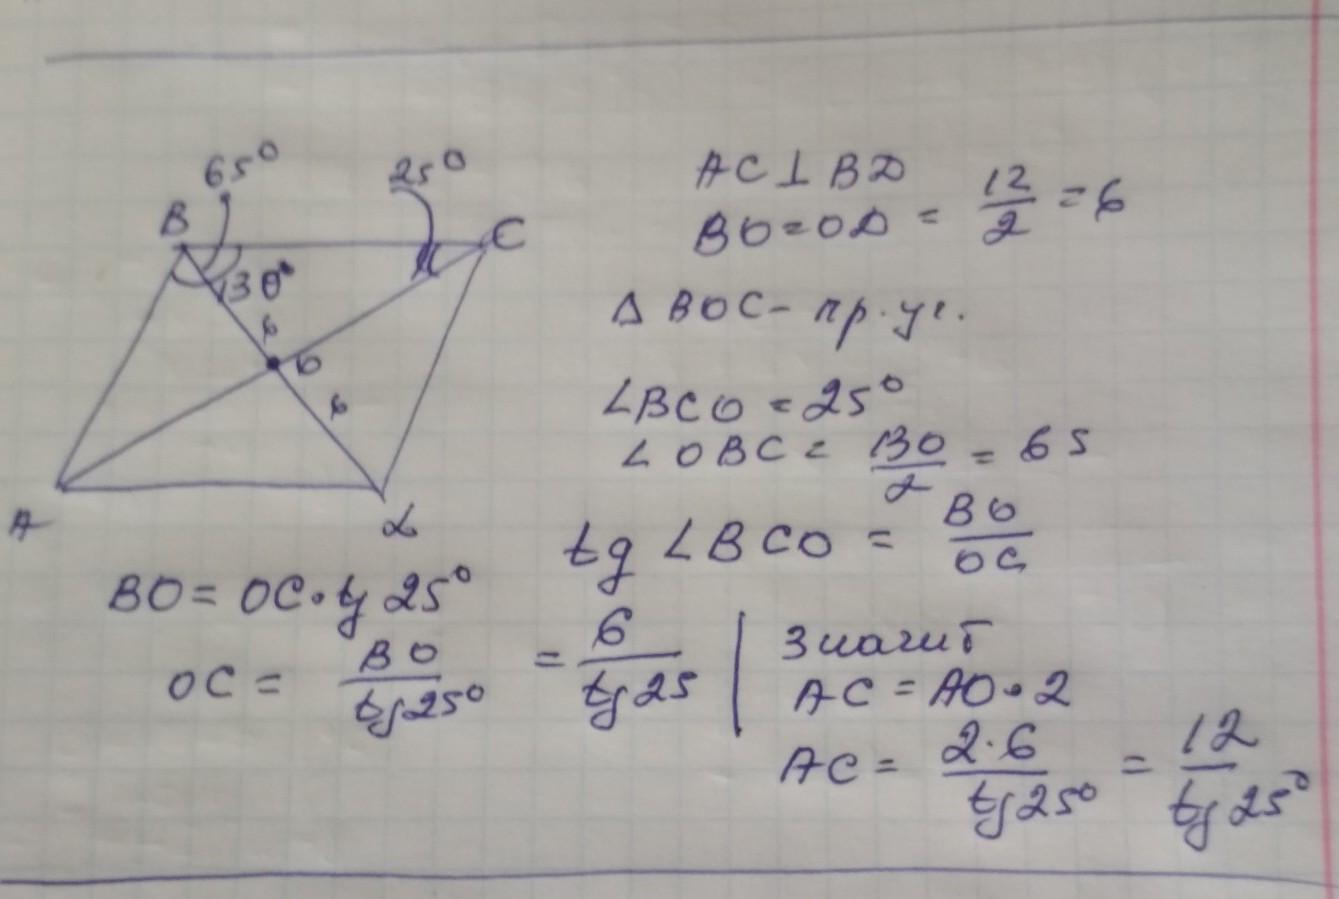 65° 25°
B C
130°
6
O
6
A D
AC ⊥ BD
BO = OD = 12/2 = 6
Δ BOC - пр. уг.
∠BCO = 25°
∠OBC = 130/2 = 65
tg ∠BCO = BO/OC
BO = OC · tg 25°
OC = BO/tg 25° = 6/tg 25
Значит
AC = AO · 2
AC = 2·6/tg 25° = 12/tg 25°